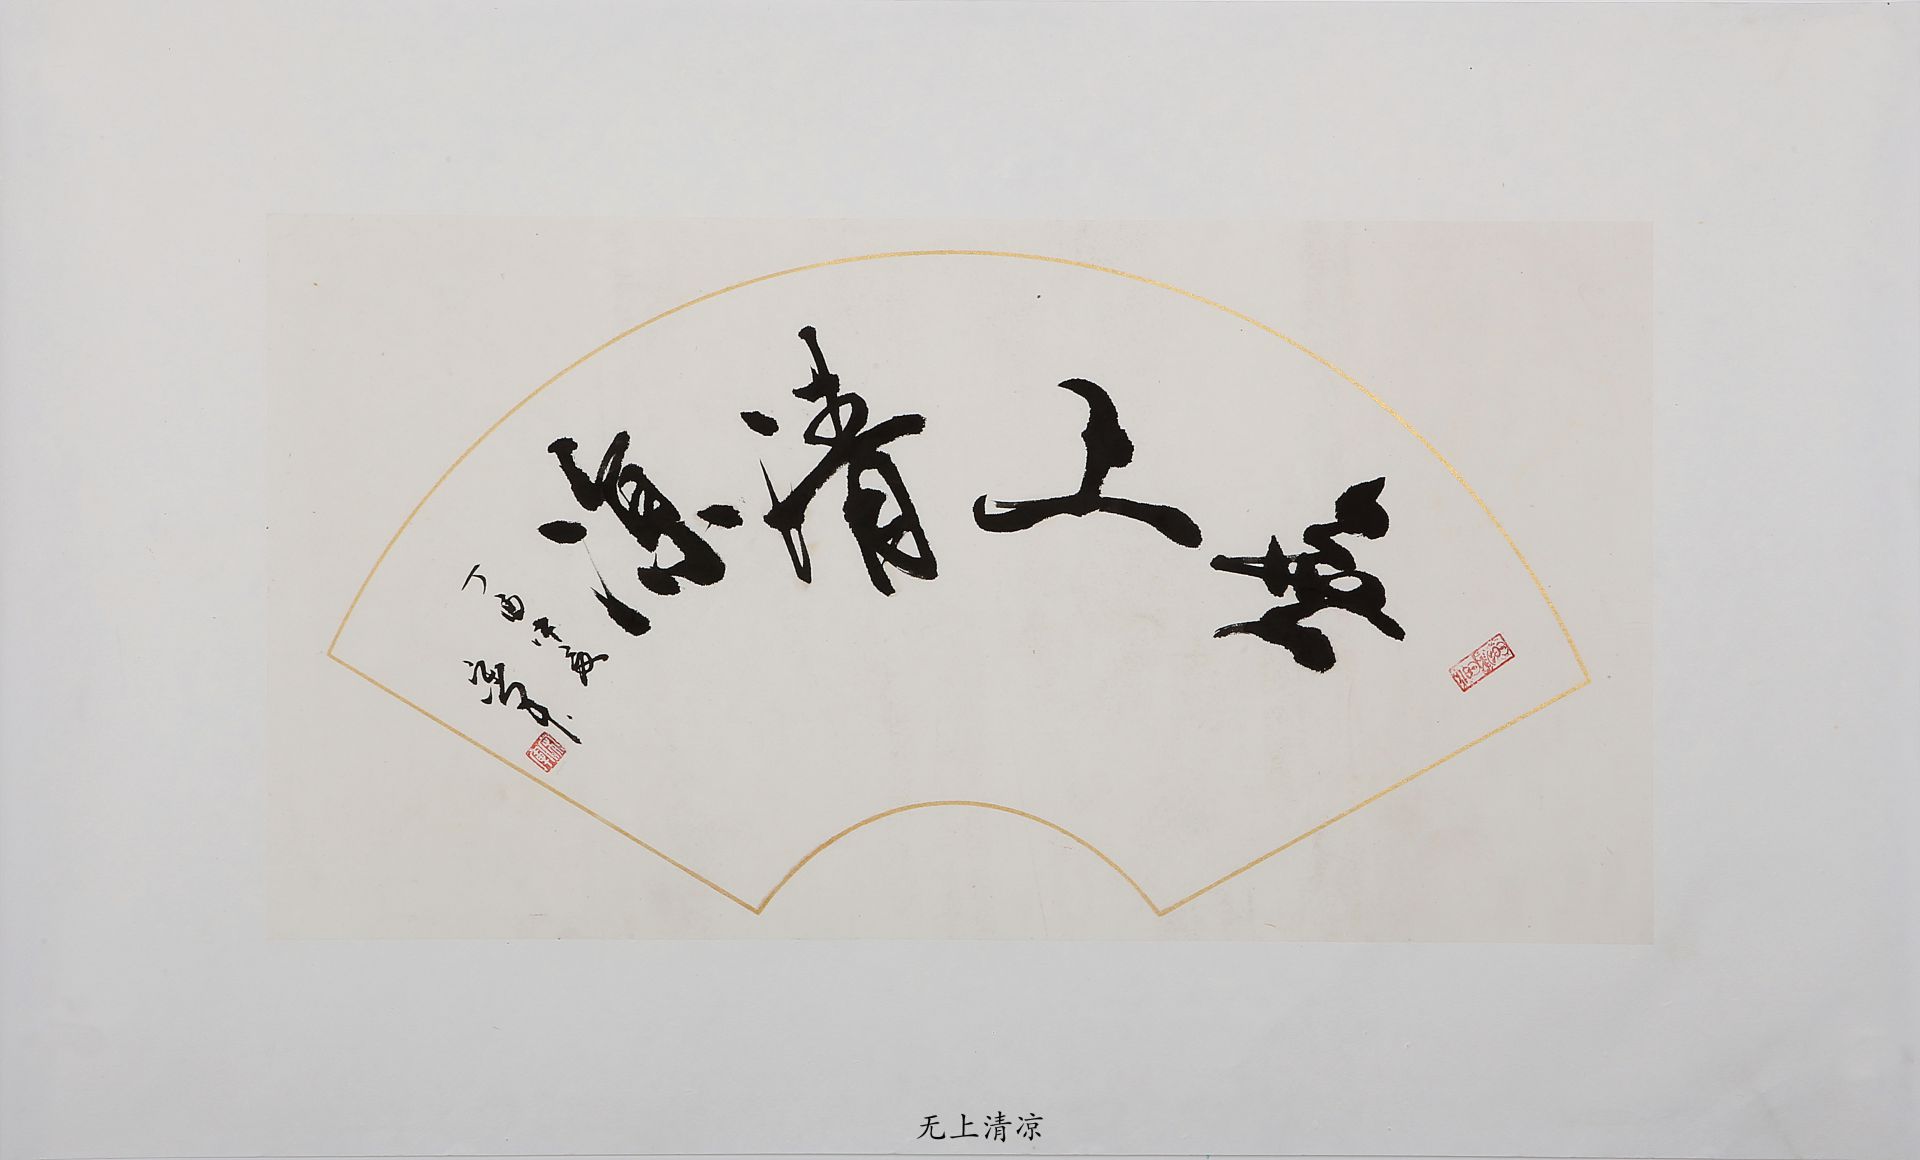 無上清涼
丁酉仲夏
无上清凉